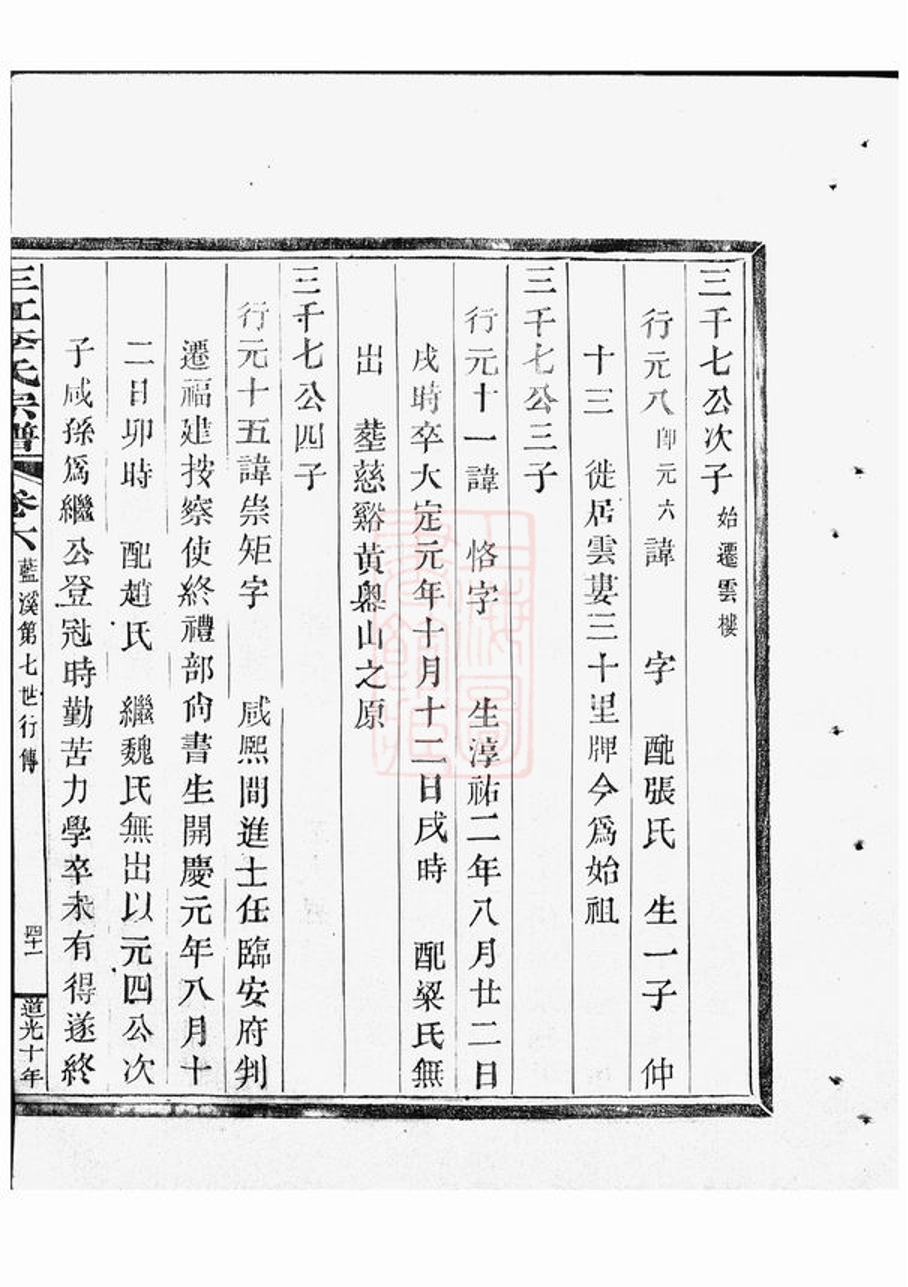 三千七公次子始遷雲樓
行元八卽元六諱　字　配張氏　生一子　仲
十三　徙居雲婁三十里牌今爲始祖
三千七公三子
行元十一諱　恪字　　生淳祐二年八月廿二日
戌時卒大定元年十月十二日戌時　配梁氏無
出　塟慈谿黃奧山之原
三千七公四子
行元十五諱崇矩字　　咸熙間進士任臨安府判
遷福建按察使終禮部尙書生開慶元年八月十
二日卯時　配趙氏　繼魏氏無出以元四公次
子咸孫爲繼公登冠時勤苦力學卒未有得遂終
三江李氏宗譜　卷六　藍溪第七世行傳　四十一　道光十年
上海圖書館藏